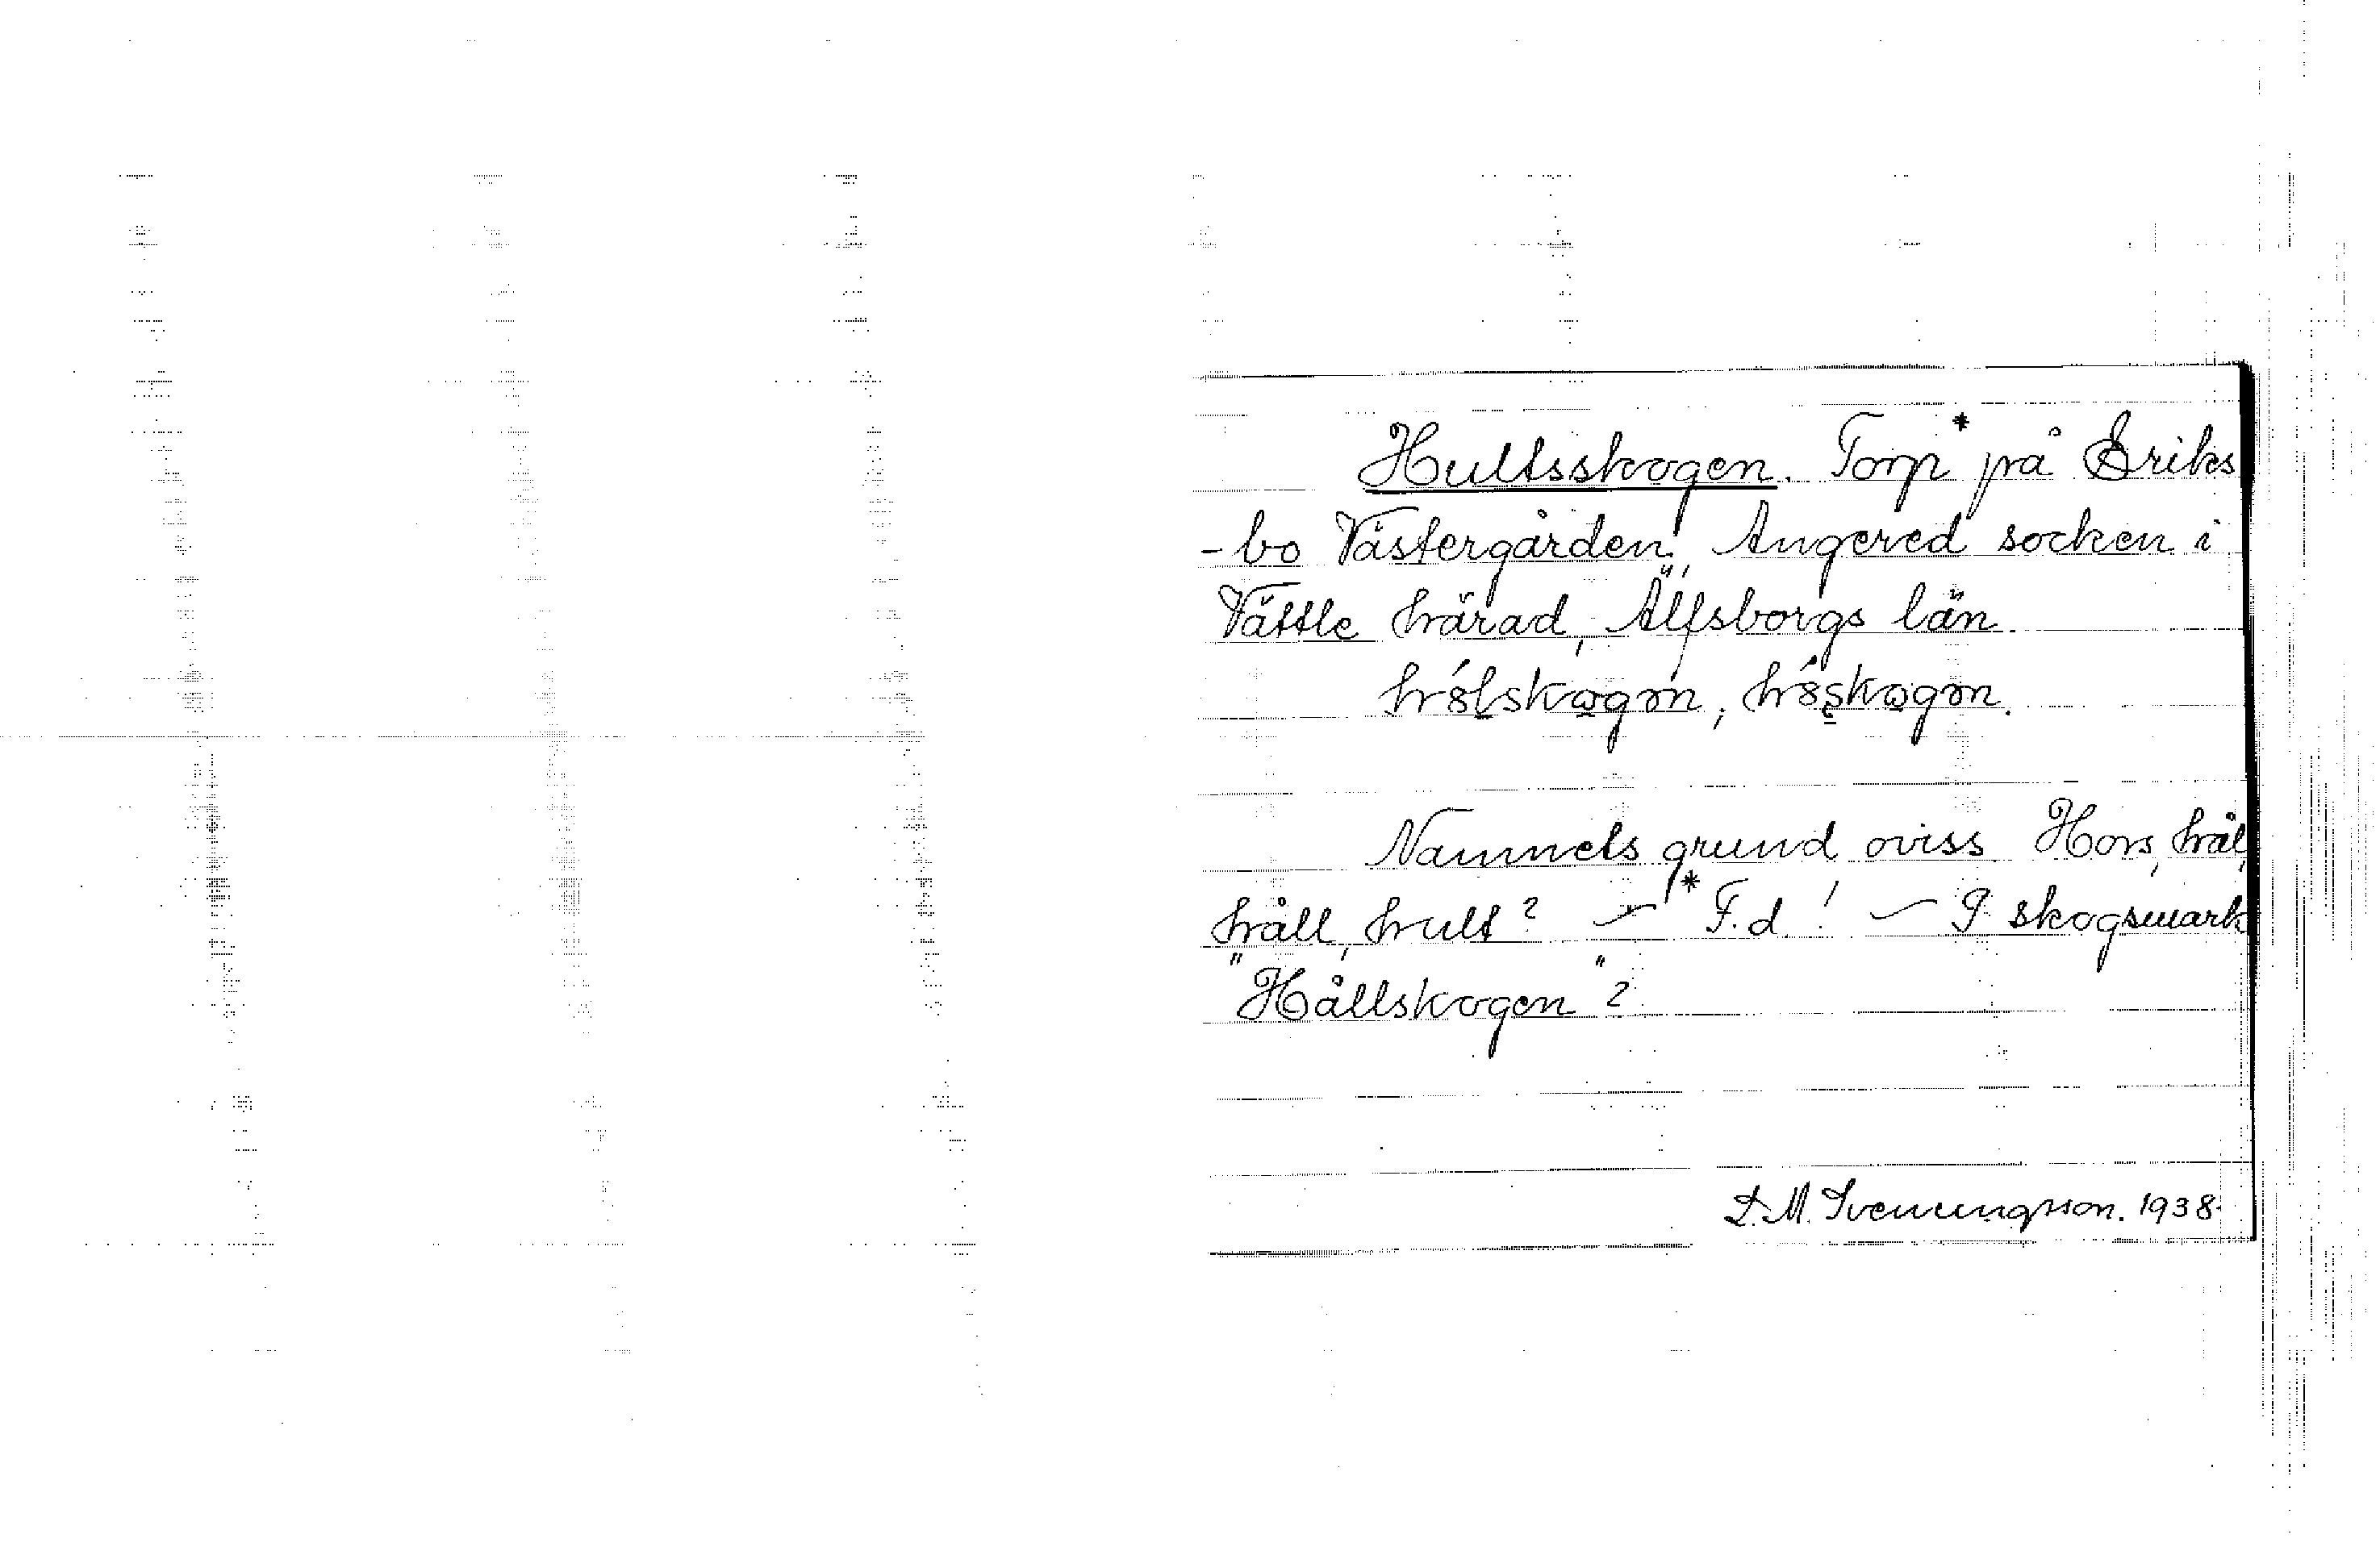 Hultsskogen. Torp* på Eriks
-bo Västergården, Angered socken i
Vättle härad, Älfsborgs län.
Namnets grund oviss. Hors, hål,
håll, hult? — * F.d.! — I skogsmark
"Hållskogen"?
D.M. Svenungsson. 1938.